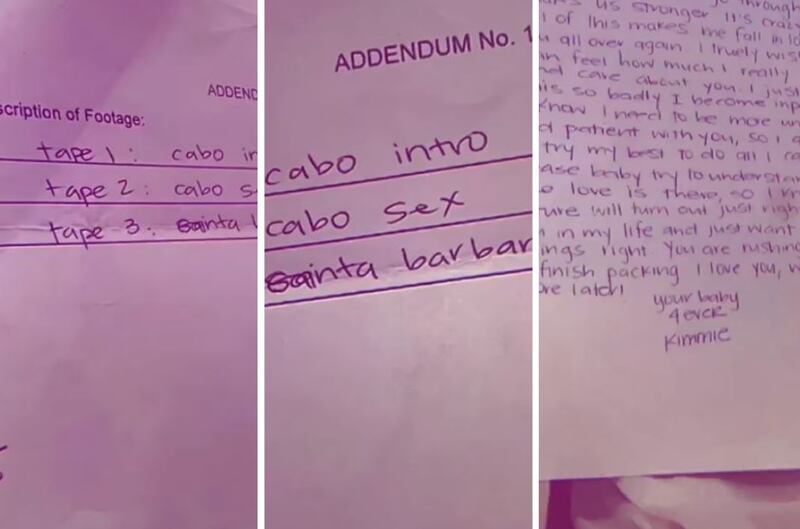 ADDEND
scription of Footage:
tape 1: cabo in
tape 2: cabo s
tape 3: Santa
ADDENDUM No. 1
cabo intro
cabo sex
Santa barbar
through
us stronger It's crazy
of this makes me fall in lo
u all over again I truely wis
an feel how much I really
nd care about you. I just
is so badly I become imp
know I need to be more un
d patient with you, so I
try my best to do all I ca
ase baby try to understan
love is there, so I kn
ure will turn out just righ
in my life and just want
ings right. You are rushing
finish packing I love you, w
ore later!
your baby
4ever
Kimmie